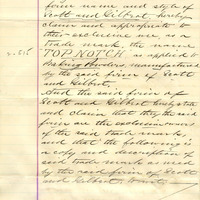 firm name and style of
Scott and Gilbert, hereby
claim and appropriate to
their exclusive use as a
Trade mark, the name
TOP NOTCH as applied to
Baking Powders, manufactured
by the said firm of Scott
and Gilbert.
And the said firm of
Scott and Gilbert hereby state
and claim that they the said
firm are the exclusive owners
of the said trade mark,
and that the following is
a copy and description of
said trade mark as used
by the said firm of Scott
and Gilbert to wit: